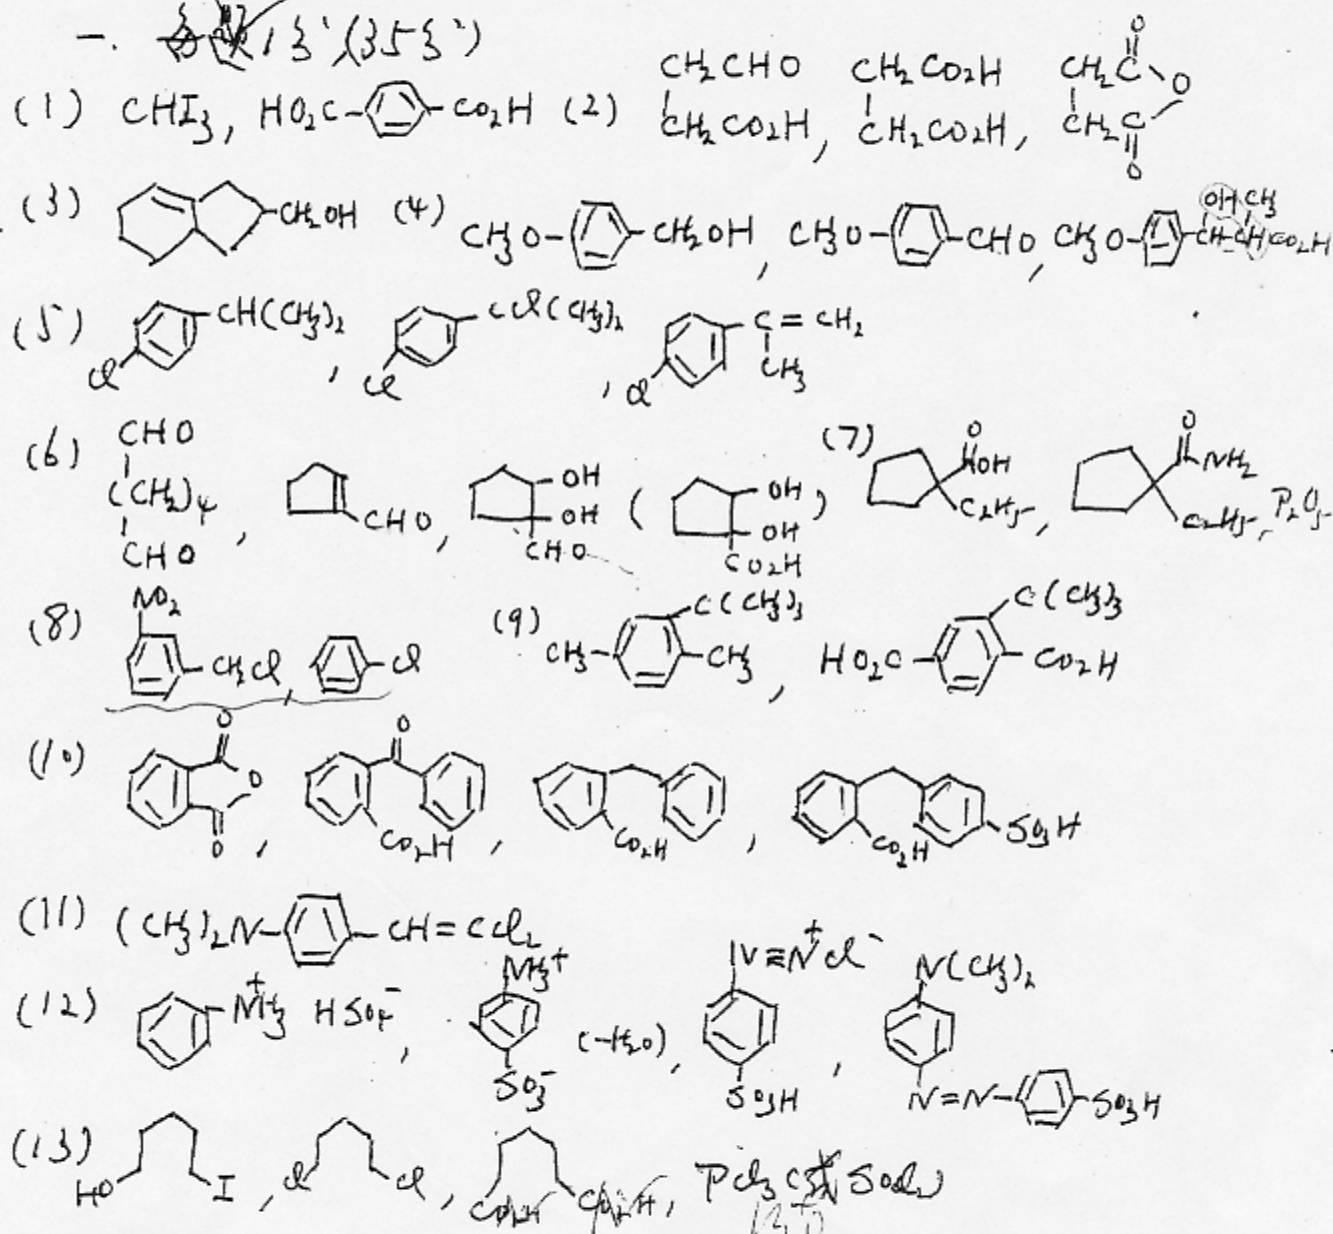 一. 每 1分 (35分)
(1) CHI3, HO2C- -CO2H (2) CH2CHO CH2CO2H, CH2CO2H CH2CO2H, CH2C O CH2C O O
(3) -CH2OH (4) CH3O- -CH2OH, CH3O- -CHO, CH3O- -CH-CHCO2H OH CH3
(5) Cl -CH(CH3)2, Cl -CCl(CH3)2, Cl -C=CH2 CH3
(6) CHO (CH2)4 CHO, CHO, OH OH CHO ( OH OH CO2H ) (7) O OH C2H5, O NH2 C2H5, P2O5
(8) NO2 -CH2Cl, -Cl (9) CH3- C(CH3)3 -CH3, HO2C- C(CH3)3 -CO2H
(10) O O O, O CO2H, CO2H, CO2H SO3H
(11) (CH3)2N- -CH=CCl2
(12) NH3+ HSO4-, NH3+ SO3- (-H2O), N≡N+ Cl- SO3H, N(CH3)2 N=N- -SO3H
(13) HO I, Cl Cl, CO2H CO2H, PCl3 (或 SOCl2)